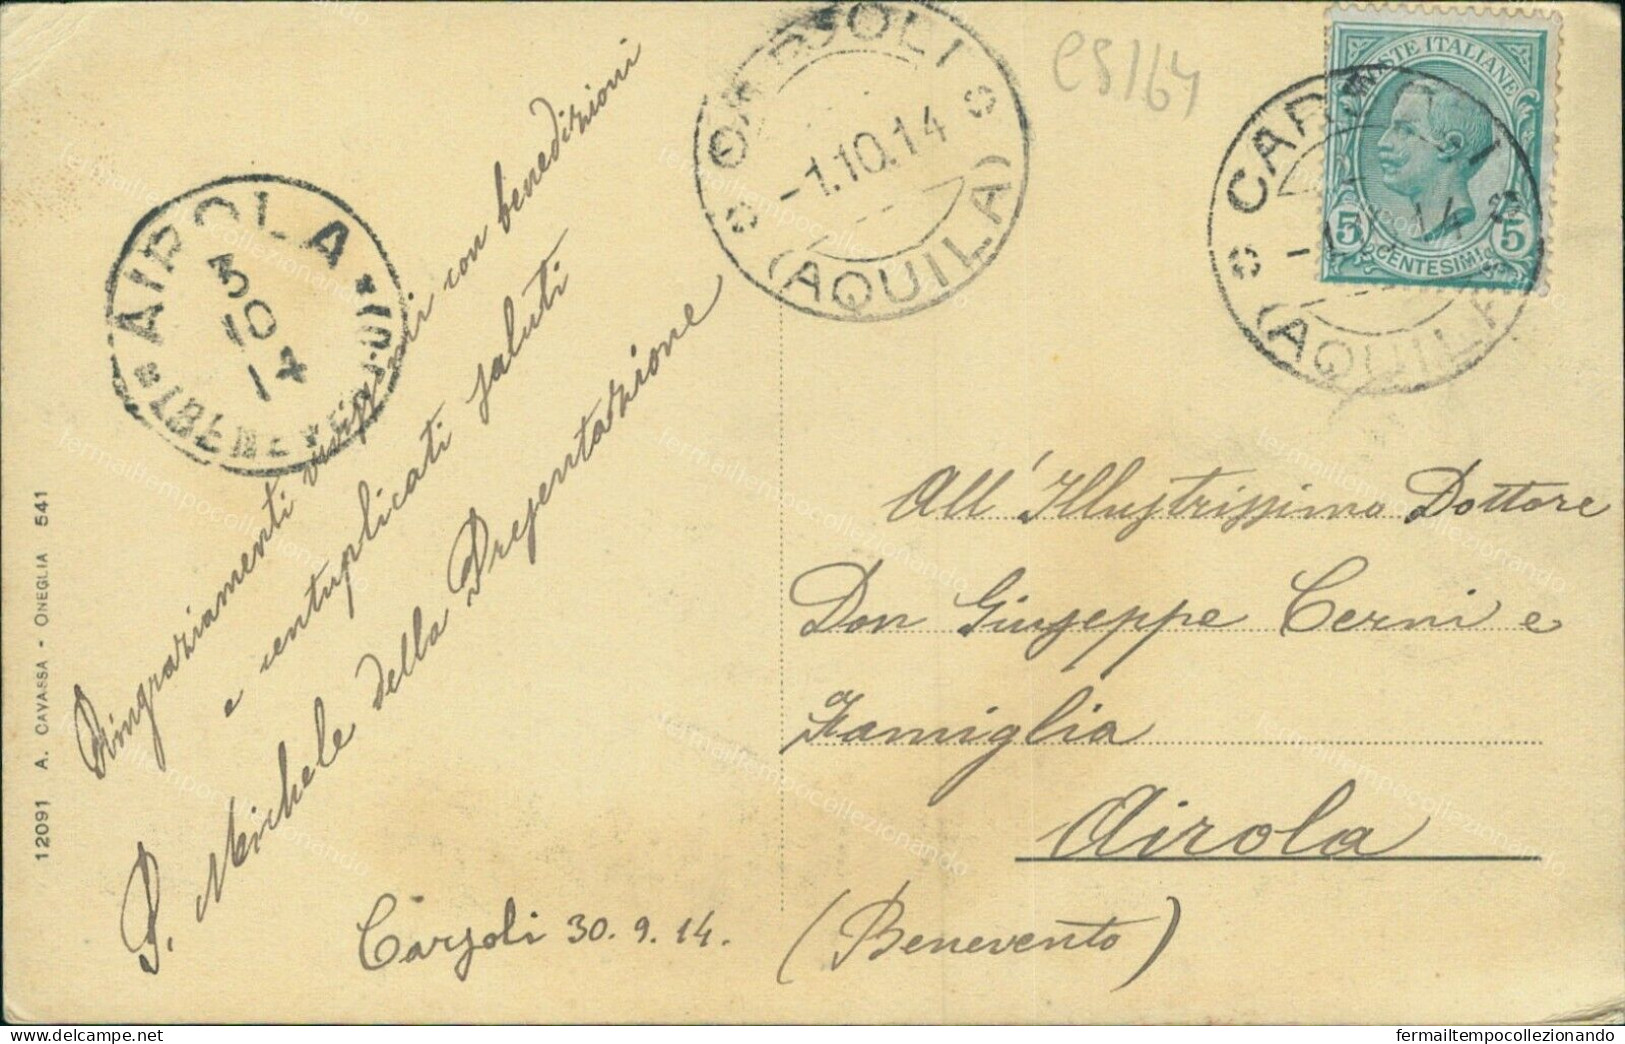 Ringraziamenti vivissimi con benedizioni
e centuplicati saluti
P. Michele della Presentazione
Carsoli 30.9.14.
All'Illustrissimo Dottore
Don Giuseppe Cerni e
Famiglia
Airola
(Benevento)
CARSOLI
-1.10.14
(AQUILA)
CARSOLI
14
(AQUILA)
AIROLA
3
10
14
POSTE ITALIANE
5 5
CENTESIMI
c5164
12091 A. CAVASSA - ONEGLIA 541
fermailtempocollezionando
www.delcampe.net
fermailtempocollezionando